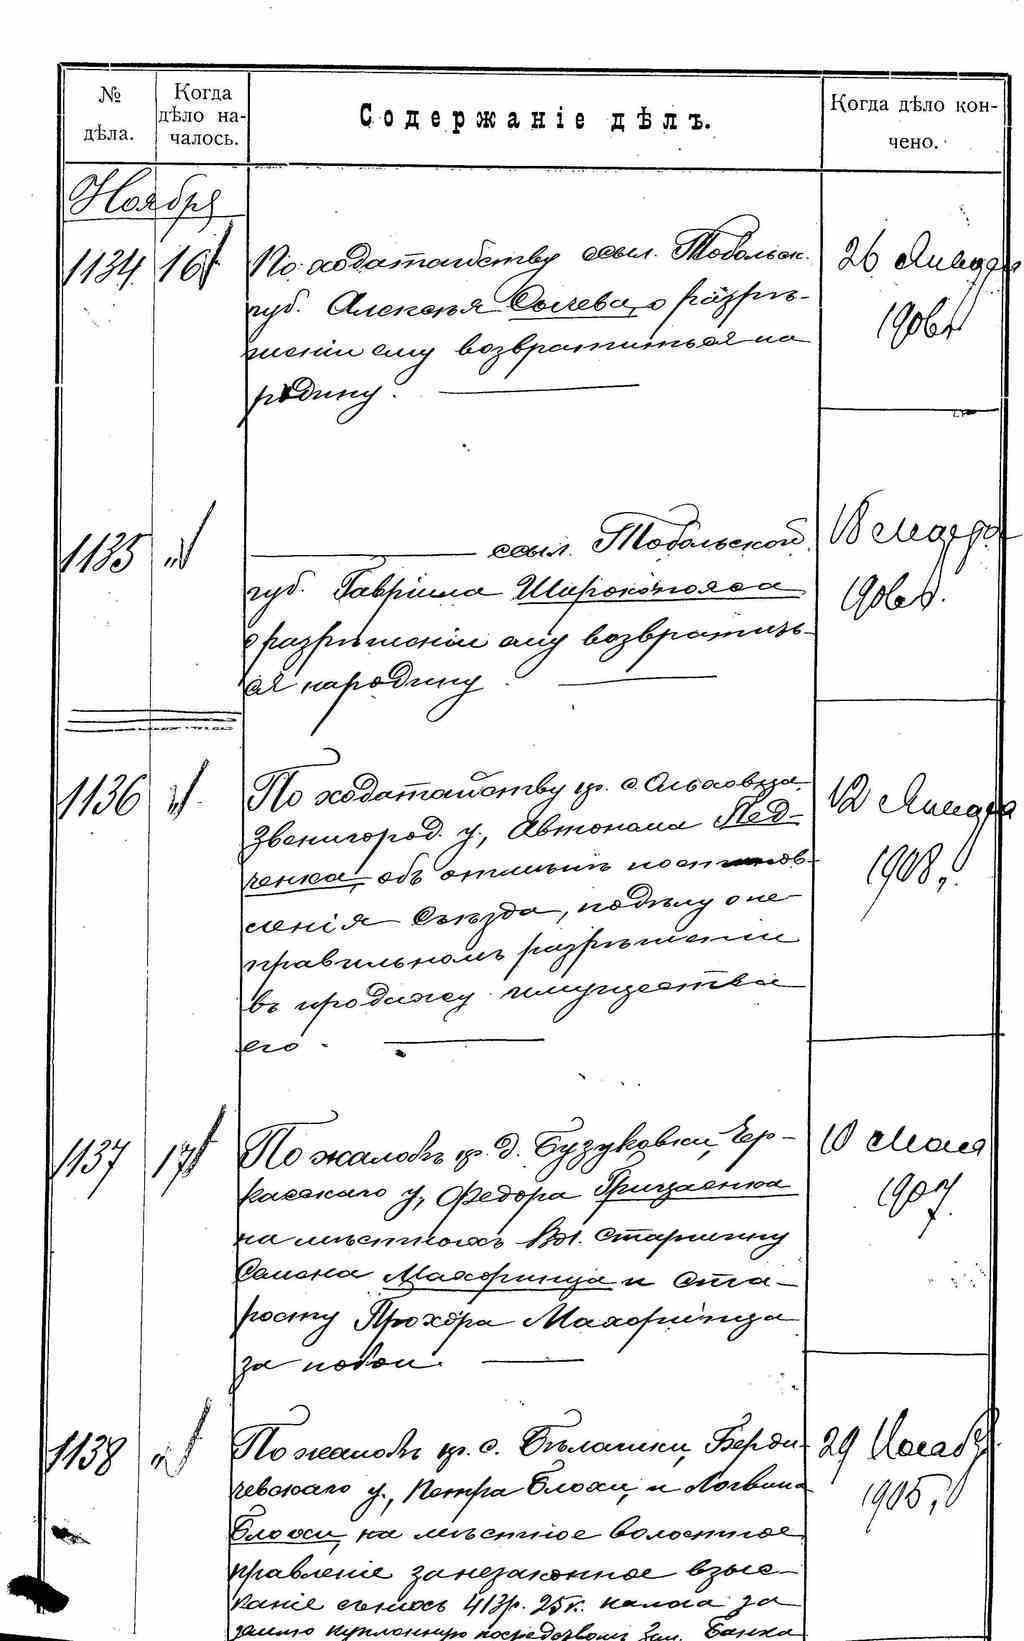 № дѣла.
Когда дѣло на-
чалось.
Содержаніе дѣлъ.
Когда дѣло кон-
чено.
Ноября
1134 16
По ходатайству ссыл. Тобольск.
губ. Алексѣя Сычева, о разрѣ-
шеніи ему возвратиться на
родину.
26 Января
1906 г.
1135 "
ссыл. Тобольской
губ. Гавріила Широкопояса
о разрѣшеніи ему возвратить-
ся на родину.
18 Марта
1906 г.
1136 "
По ходатайству кр. с. Ольховца,
Звенигород. у., Автонома Пед-
ченка, объ отмѣнѣ постановленія
Съѣзда, по дѣлу о не-
правильномъ разрѣшеніи
въ продажу имущества
его.
12 Января
1908 г.
1137 17
По жалобѣ кр. д. Бузуковки, Чер-
касскаго у., Федора Грицаенка
на мѣстныхъ Вол. старшину
Семена Махоринца и ста-
росту Прохора Махоринца
за побои.
10 Мая
1907
1138 "
По жалобѣ кр. с. Бѣлашки, Берди-
чевскаго у., Петра Блохи, и Логвина
Блохи, на мѣстное волостное
правленіе за незаконное взыс-
каніе съ нихъ 413 р. 25 к. налога за
землю купленную посредствомъ Зем. Банка
29 Ноября
1905 г.